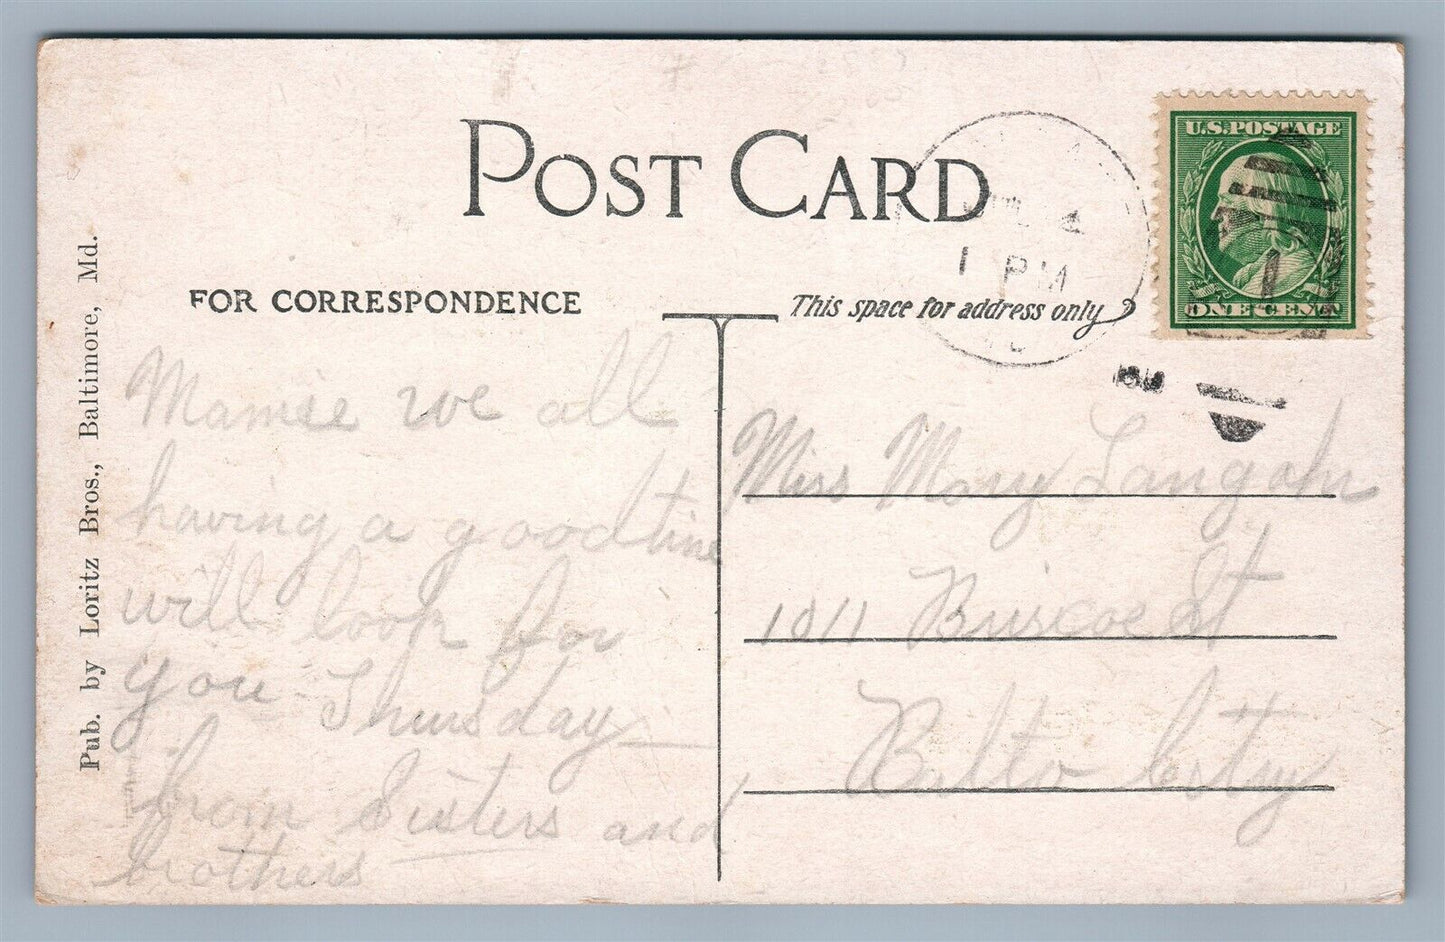 POST CARD
U.S. POSTAGE
ONE CENT
JUL 4
1 PM
FOR CORRESPONDENCE
This space for address only
Mamie we all
having a good time
will look for
you Thursday
from Sisters and
brothers
Miss Mary
1011 Briscoe St
Balto City
Pub. by Loritz Bros., Baltimore, Md.